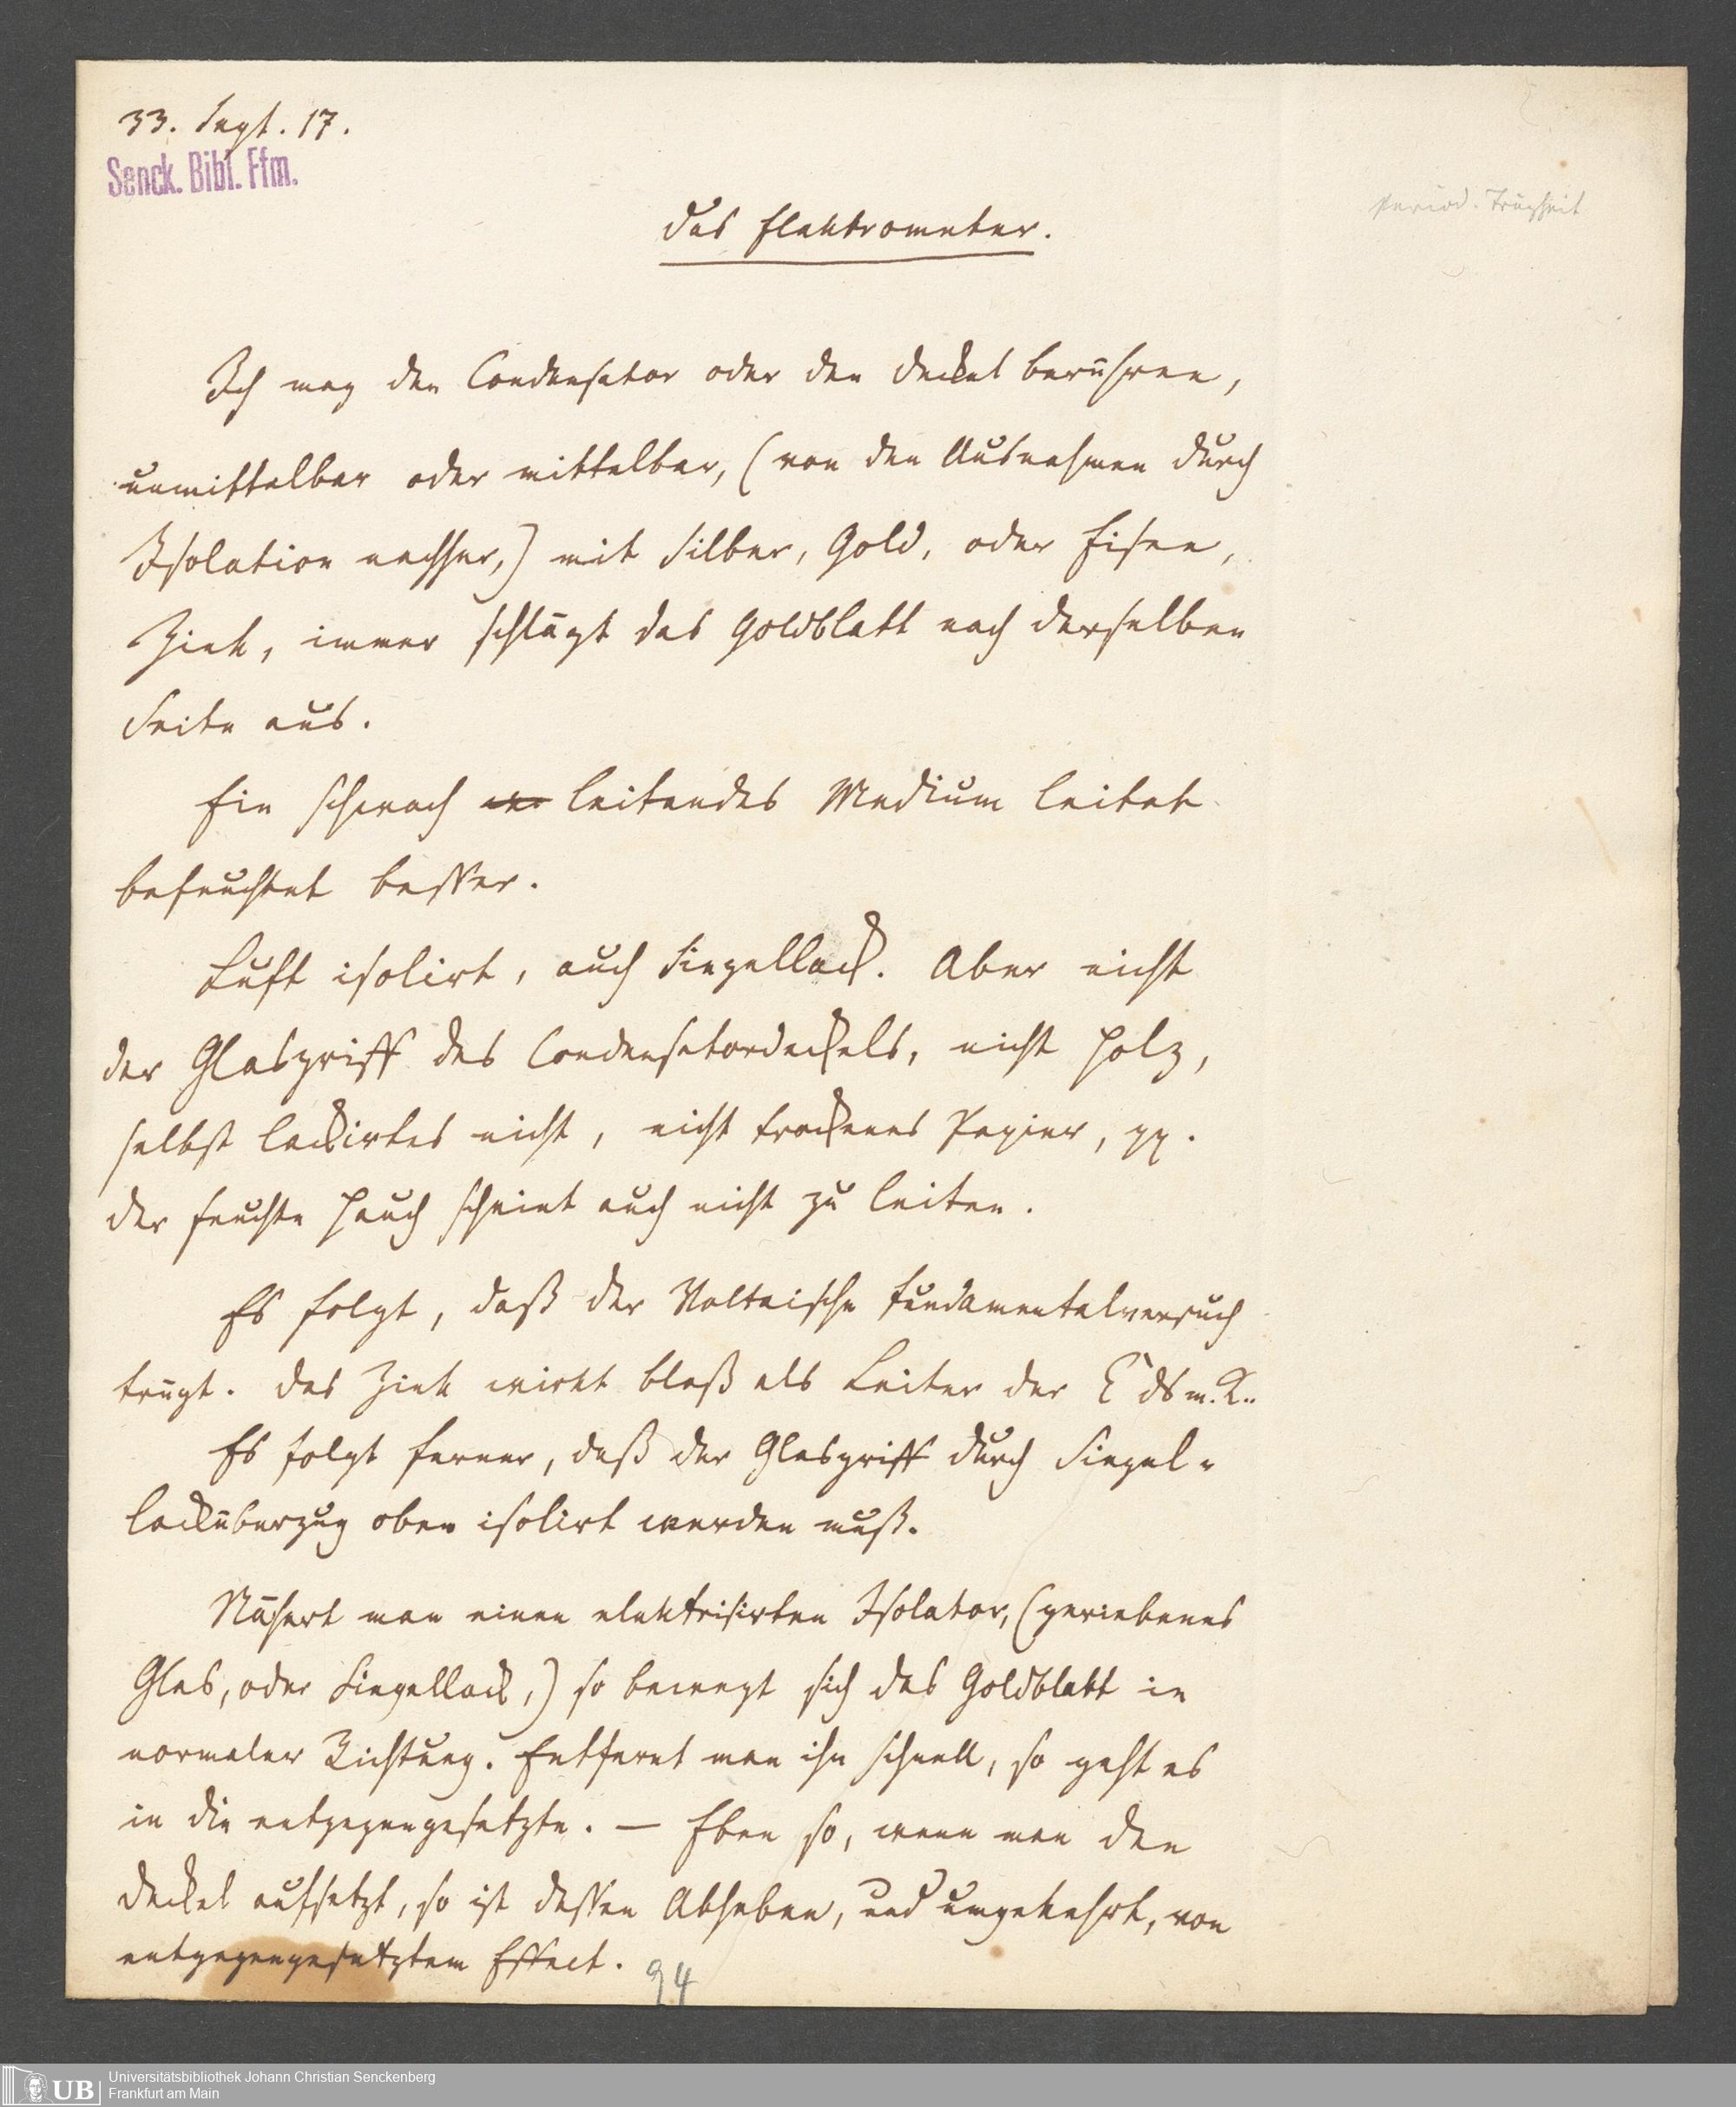 33. Sept. 17.
Senck. Bibl. Ffm.
Period. Trägheit
Das Elektrometer.
Ich mag den Condensator oder den Deckel berühren,
unmittelbar oder mittelbar, (von den Ausnahmen durch
Isolation nachher,) mit Silber, Gold, oder Eisen,
Zink, immer schlägt das Goldblatt nach derselben
Seite aus.
Ein schwach leitendes Medium leitet
befeuchtet besser.
Luft isolirt, auch Siegellack. Aber nicht
der Glasgriff des Condensatordeckels, nicht Holz,
selbst lackirtes nicht, nicht trockenes Papier, pp.
Der feuchte Hauch scheint auch nicht zu leiten.
Es folgt, daß der Voltaische Fundamentalversuch
trügt. Das Zink wirkt bloß als Leiter der E ds m. K..
Es folgt ferner, daß der Glasgriff durch Siegel-
lacküberzug oben isolirt werden muß.
Nähert man einen elektrisirten Isolator, (geriebenes
Glas, oder Siegellack,) so bewegt sich das Goldblatt in
normaler Richtung. Entfernt man ihn schnell, so geht es
in die entgegengesetzte. — Eben so, wenn man den
Deckel aufsetzt, so ist dessen Abheben, und umgekehrt, von
entgegengesetztem Effect.
94
UB
Universitätsbibliothek Johann Christian Senckenberg
Frankfurt am Main